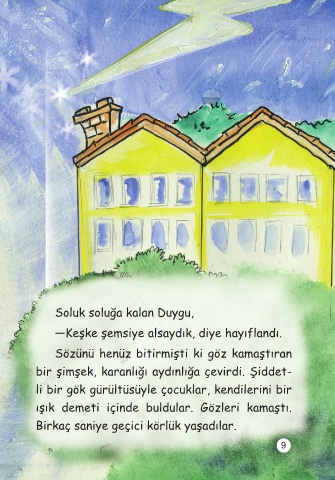 Soluk soluğa kalan Duygu,
—Keşke şemsiye alsaydık, diye hayıflandı.
Sözünü henüz bitirmişti ki göz kamaştıran
bir şimşek, karanlığı aydınlığa çevirdi. Şiddet-
li bir gök gürültüsüyle çocuklar, kendilerini bir
ışık demeti içinde buldular. Gözleri kamaştı.
Birkaç saniye geçici körlük yaşadılar.
9